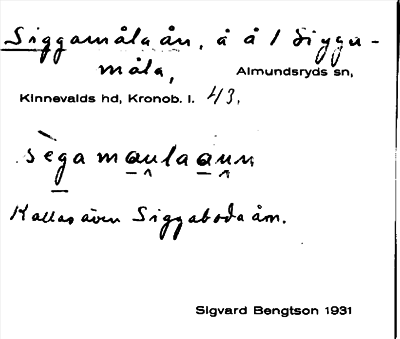 Siggamåla ån, å å / Sigga-
måla, Almundsryds sn,
Kinnevalds hd, Kronob. l. 43.
sègamaulaaun
Kallas även Siggaboda åm.
Sigvard Bengtson 1931